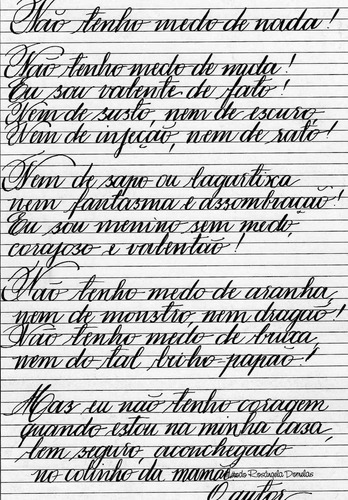 Não tenho medo de nada!
Não tenho medo de nada!
Eu sou valente de fato!
Nem de susto, nem de escuro,
Nem de injeção, nem de rato!
Nem de sapo ou lagartixa
nem fantasma e assombração!
Eu sou menino sem medo,
corajoso e valentão!
Não tenho medo de aranha,
nem de monstro, nem dragão!
Não tenho medo de bruxa,
nem do tal bicho-papão!
Mas eu não tenho coragem
quando estou na minha casa,
bem seguro, aconchegado
no colinho da mamãe
Rosângela